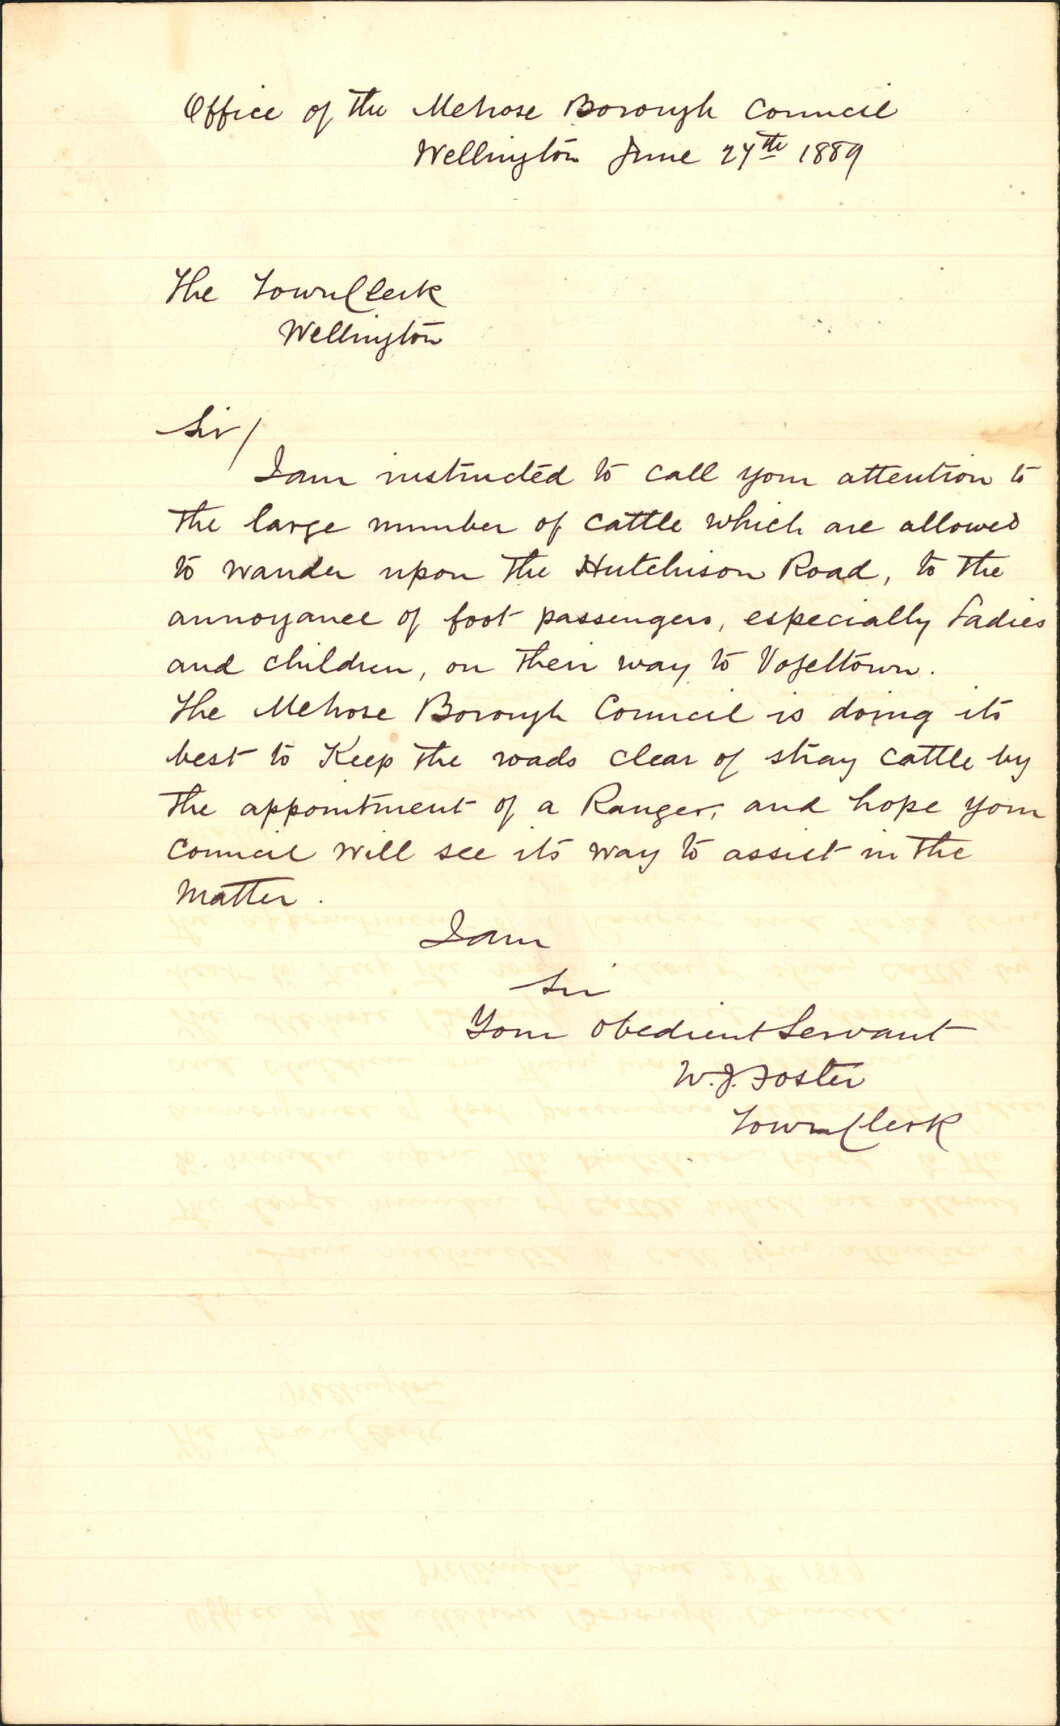 Office of the Melrose Borough Council
Wellington June 27th 1889
The Town Clerk
Wellington
Sir/
I am instructed to call your attention to
the large number of cattle which are allowed
to wander upon the Hutchison Road, to the
annoyance of foot passengers, especially Ladies
and children, on their way to Vogeltown.
The Melrose Borough Council is doing its
best to Keep the roads clear of stray cattle by
the appointment of a Ranger, and hope your
Council will see its way to assist in the
Matter.
I am
Sir
Your Obedient Servant
W.J. Foster
Town Clerk